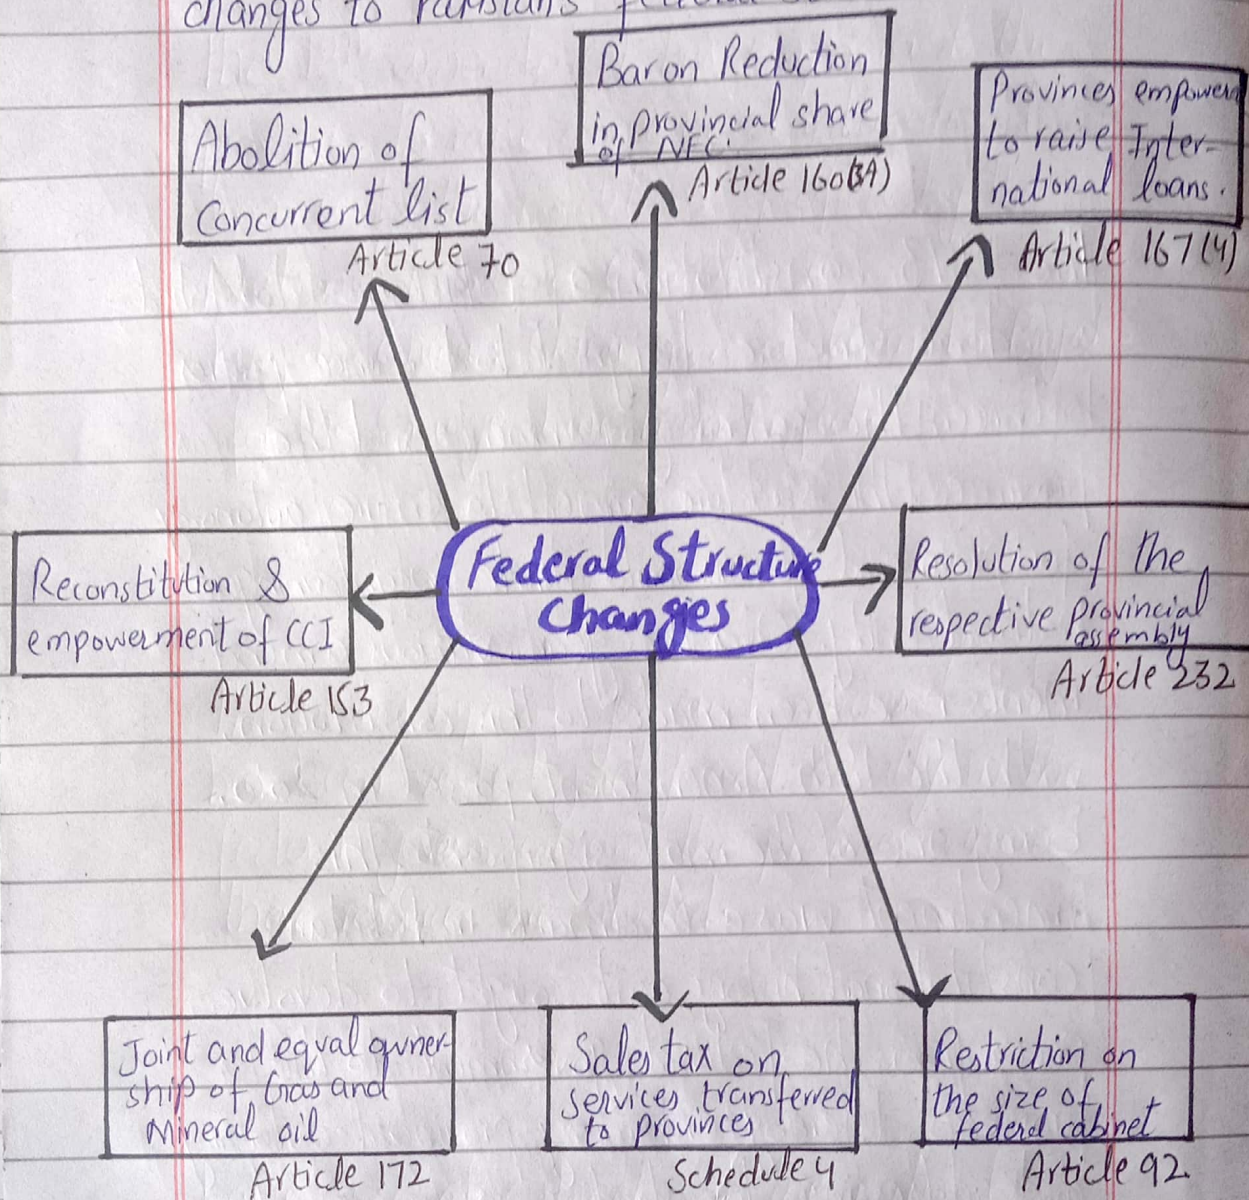 changes to Pakistan's
Abolition of
Concurrent list
Article 70
Bar on Reduction
in provincial share
of NFC.
Article 160(3A)
Provinces empowern
to raise Inter-
national loans.
Article 167(4)
Federal Structure
Changes
Reconstitution &
empowerment of CCI
Article 153
Resolution of the
respective provincial
assembly
Article 232
Joint and equal owner-
ship of Gas and
Mineral oil
Article 172
Sales tax on
services transferred
to provinces
Schedule 4
Restriction on
the size of
federal cabinet
Article 92